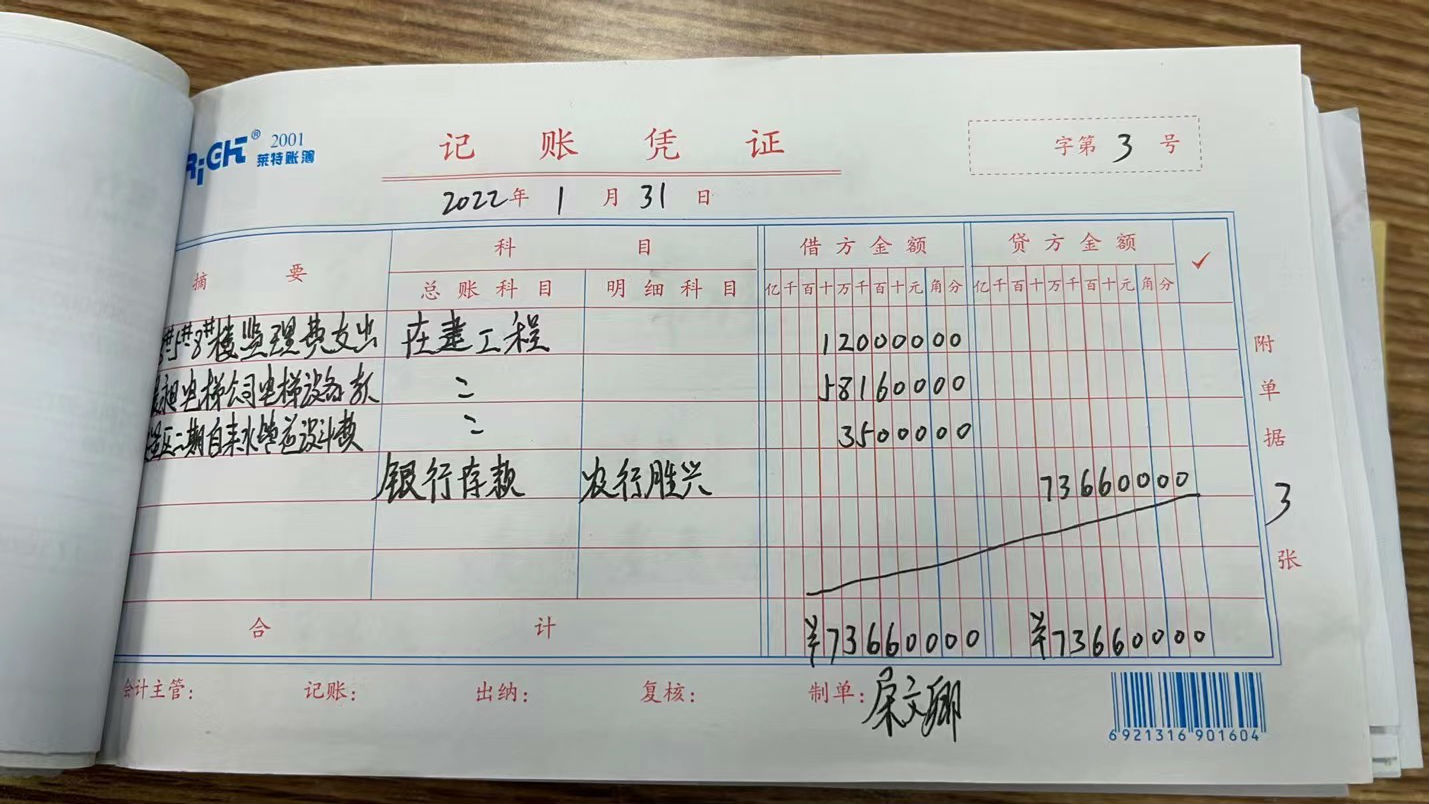 RIGHT® 2001
莱特账簿
记账凭证
字第 3 号
2022年 1 月 31 日
摘要 科目 借方金额 贷方金额 ✓
总账科目 明细科目 亿千百十万千百十元角分 亿千百十万千百十元角分
5#8#楼监理费支出 在建工程 12000000
电梯公司电梯设备款 〃 58160000
区二期自来水 设计费 〃 3500000
银行存款 农行胜兴 73660000
合计 ¥73660000 ¥73660000
附单据 3 张
会计主管: 记账: 出纳: 复核: 制单: 屈文卿
6 921316 901604